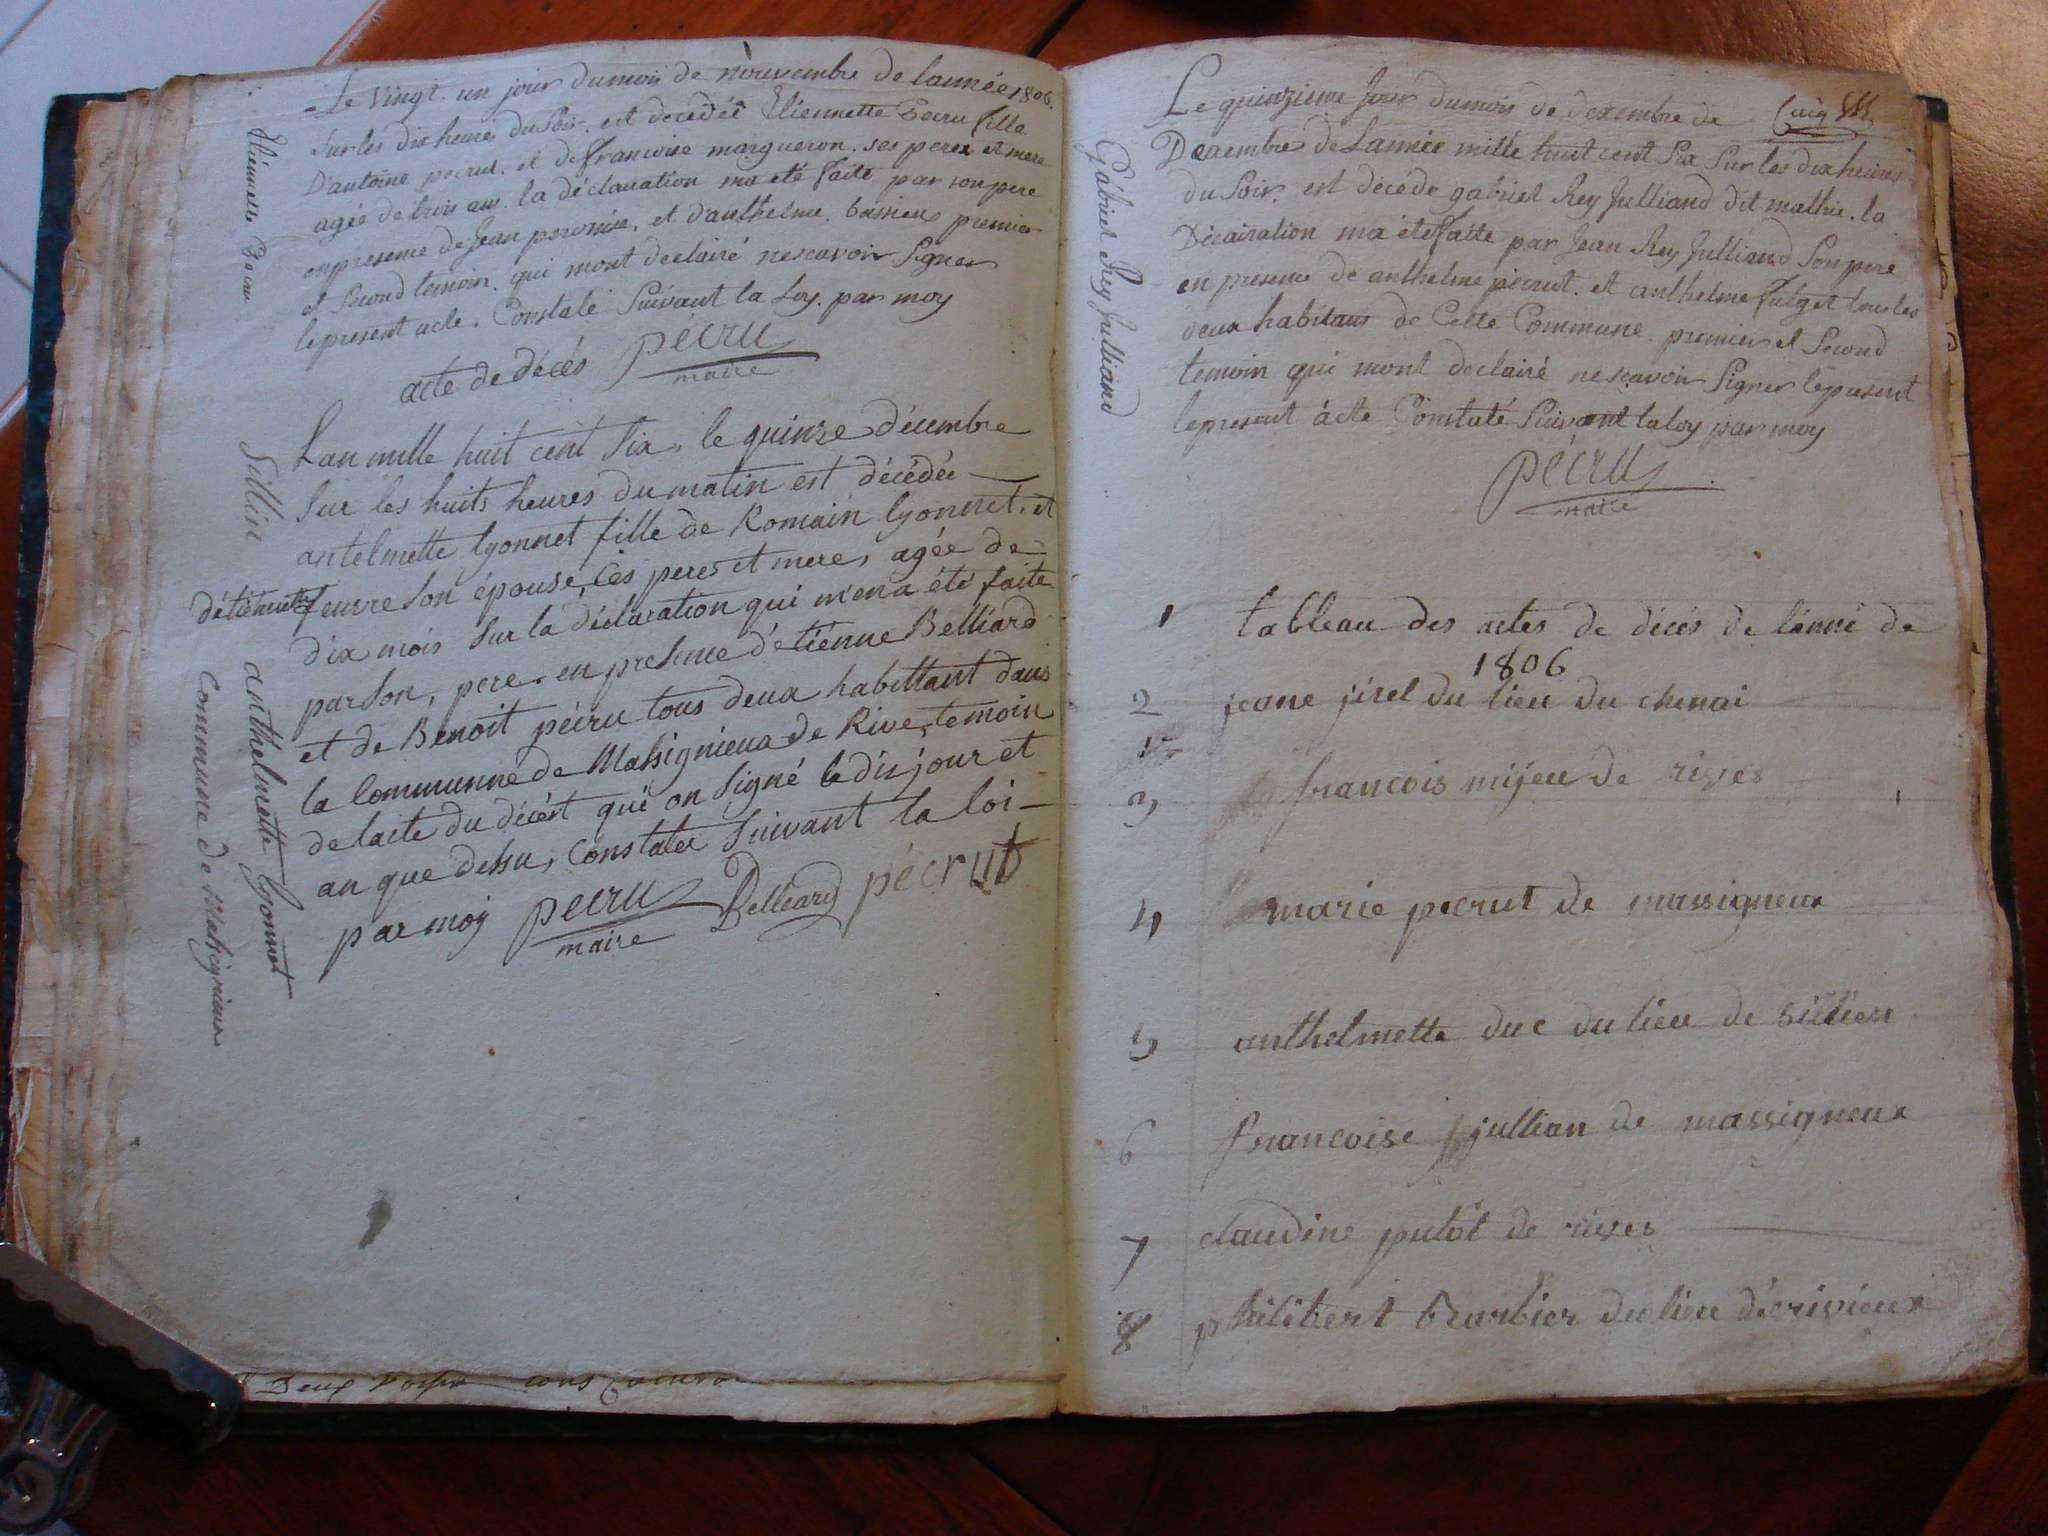 Le vingt un jour dumois de nouvembre de lannée 1806.
Sur les dix heures du Soir. est décédéé Etiennette Pecru fille
D'antoine pecrut. et de francoise margueron. ses peres et mere
agée de trois ans. la déclaration ma eté faite par son pere
en presense de Jean et d'anthelme. premier
et Second temoin. qui mont declairé nescavoir Signer
le present acte. Constaté Suivant la Loy. par moy
pécru
maire
Etiennette Pecru
acte de décés
Lan mille huit cent Six, le quinze décembre
Sur les huits heures du matin est décédée
antelmette lyonnet fille de Romain lyonnet, et
détiennette feuvre Son épouse, Ces peres et mere, agée de
dix mois Sur la déclaration qui m'en a été faite
par Son, pere, en presence détiénne Belliard
et de Benoit pécru tous deux habittant dans
la Communne de Massignieux de Rive, temoin
de lacte du décést qui on Signé le dis jour et
an que dessu, Constater Suivant la loi
par moy pécru Belleard pécrut
maire
Sillin
anthelmette lyonnet
Commune de Massignieux
Deux
Le quinzieme Jour dumois de dexembre de
Decembre de Lannée mille huit cent Six Sur les dix heures
du Soir. est décéde gabriel Rey Julliand dit mathie. la
Déclairation ma éte faite par Jean Rey Julliand Son pere
en presence de anthelme pécrut. et anthelme fulget tous les
deux habitans de Cette Commune. premier et Second
temoin qui mont declairé nescavoir Signer le present
le present acte Constaté Suivant la loy par moy
pécru
maire
Gabriel Rey Julliand
1 tableau des actes de décés de lánné de
1806
2 jeane jirel du lieu du chenai
3 francois mijeu de rives
4 marie pecrut de massigneux
5 anthelmette duc du lieu de sillieu
6 francoise jullian de massigneux
7 claudine putot de rives
8 philibert barbier du lieu décrivieux